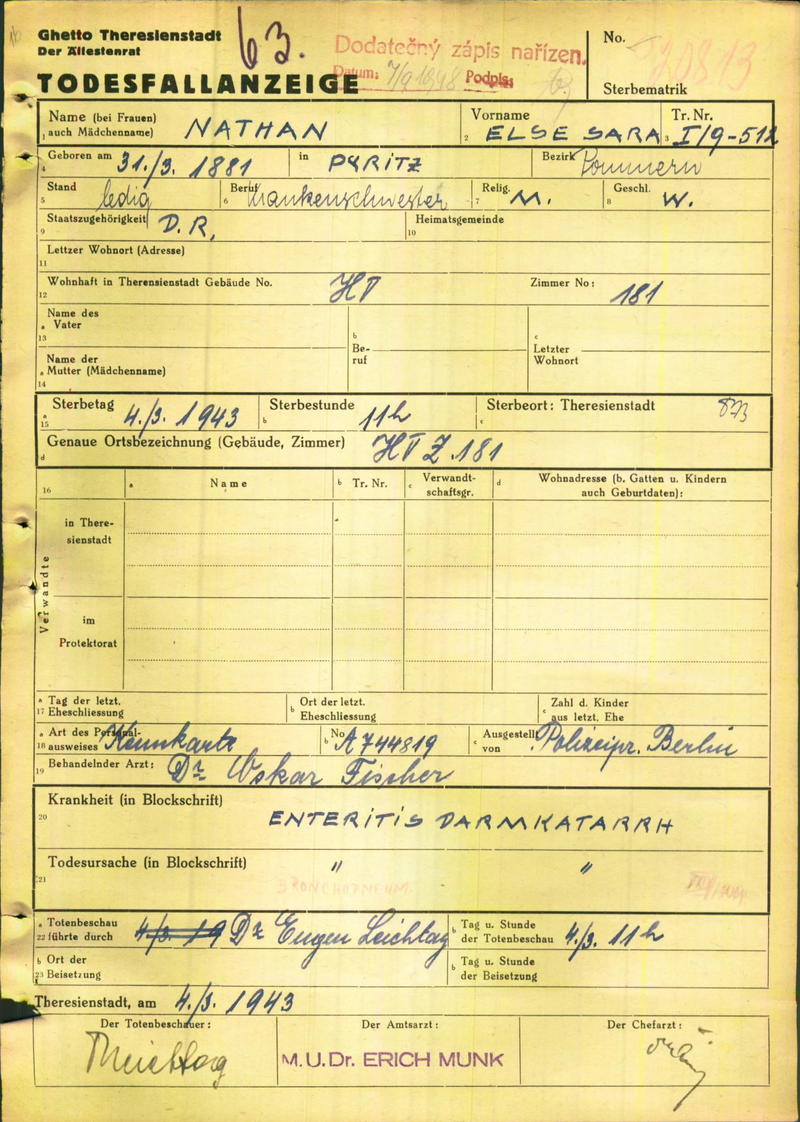 Ghetto Theresienstadt
Der Ältestenrat
63.
Dodatečný zápis nařízen.
Datum: 7/9 1948 Podpis:
No.
TODESFALLANZEIGE
Sterbematrik
Name (bei Frauen) NATHAN Vorname ELSE SARA Tr. Nr. I/9-512
1 auch Mädchenname) 2 3
Geboren am 31./3. 1881 in PYRITZ Bezirk Pommern
4
Stand ledig Beruf Krankenschwester Relig. M. Geschl. W.
5 6 7 8
Staatszugehörigkeit D.R. Heimatsgemeinde
9 10
Lettzer Wohnort (Adresse)
11
Wohnhaft in Theresienstadt Gebäude No. HV Zimmer No: 181
12
Name des
a Vater
13
b
Be-
ruf
c
Letzter
Wohnort
Name der
a Mutter (Mädchenname)
14
a Sterbetag 4./3. 1943 Sterbestunde 11h Sterbeort: Theresienstadt 873
15 b c
Genaue Ortsbezeichnung (Gebäude, Zimmer) HV Z.181
d
16 a Name b Tr. Nr. c Verwandt-
schaftsgr. d Wohnadresse (b. Gatten u. Kindern
auch Geburtdaten):
Verwandte
in There-
sienstadt
im
Protektorat
a Tag der letzt.
17 Eheschliessung
b Ort der letzt.
Eheschliessung
c Zahl d. Kinder
aus letzt. Ehe
a Art des Personal-
18 ausweises Kennkarte b No A744819 c Ausgestellt
von Polizeipr. Berlin
Behandelnder Arzt: Dr Oskar Fischer
19
Krankheit (in Blockschrift)
20 ENTERITIS DARMKATARRH
Todesursache (in Blockschrift) " "
21
a Totenbeschau
22 führte durch 4/3. 19 Dr Eugen Leichtag b Tag u. Stunde
der Totenbeschau 4./3. 11h
b Ort der
23 Beisetzung
b Tag u. Stunde
der Beisetzung
Theresienstadt, am 4./3. 1943
Der Totenbeschauer: Der Amtsarzt: Der Chefarzt:
M.U.Dr. ERICH MUNK